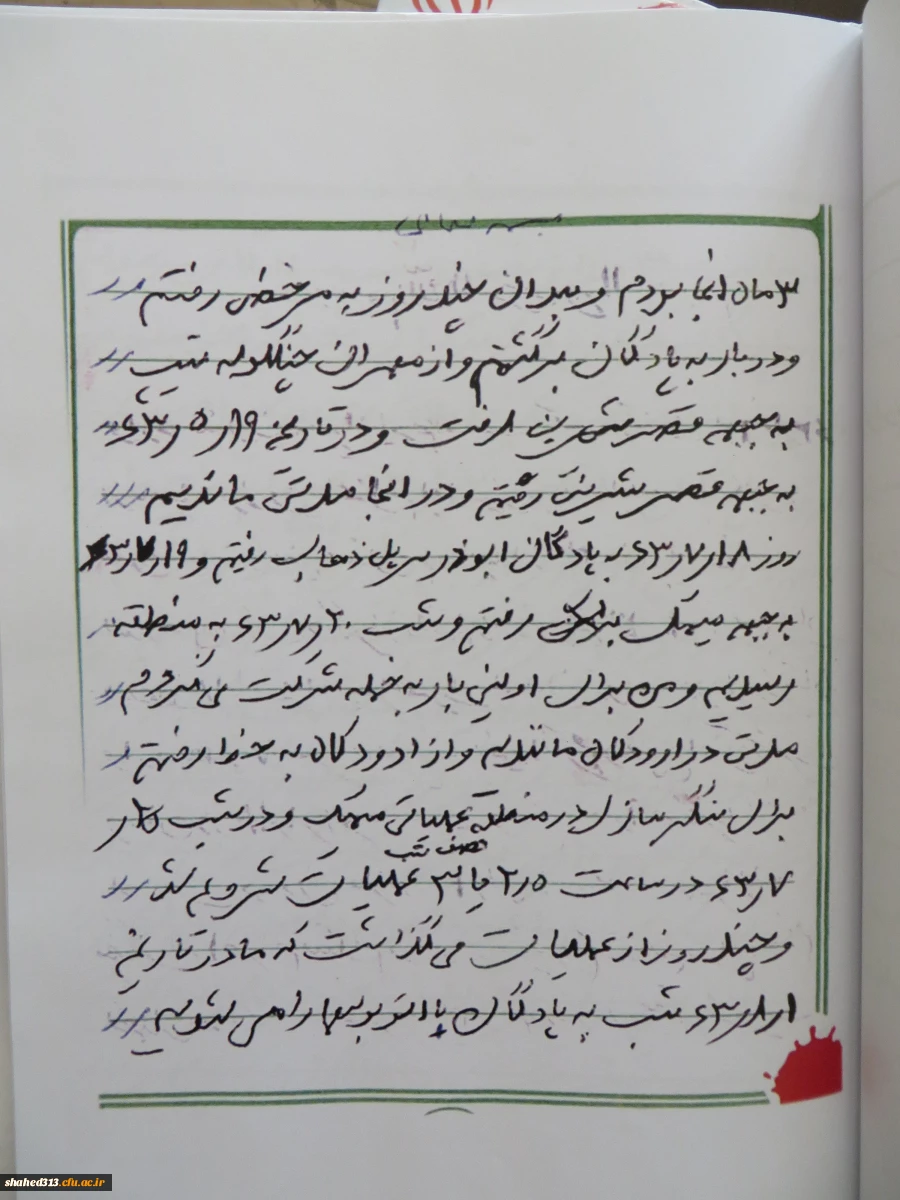 بسمه تعالی
۳ ماه انجا بودم و بعد از چند روز به مرخصی رفتم
و دوباره به پادگان برگشتم و از مهران چنگوله تیپ
به جبهه قصرشیرین رفت و در تاریخ ۱۹ر۵ر۶۳
به جبهه قصر شیرین رفتیم و در انجا مدتی ماندیم
روز ۱۸ر۷ر۶۳ به پادگان ابوذر سرپل ذهاب رفتیم و ۱۹ر۷ر۶۳
به جبهه میمک رفتم و شب ۲۰ر۷ر۶۳ به منطقه
رسیدیم و من برای اولین بار به حمله شرکت می کردم
مدتی در اردوگاه ماندیم و از اردوگاه به خط رفتم
برای سنگر سازی در منطقه عملیاتی میمک و در شب ۲۵ر
۷ر۶۳ در ساعت ۲ر۵ یا ۳ نصف شب عملیات شروع شد
و چند روز از عملیات می گذاشت که ما در تاریخ
۱ر۸ر۶۳ شب به پادگان با اتوبوسها راهی شدیم
shahed313.cfu.ac.ir